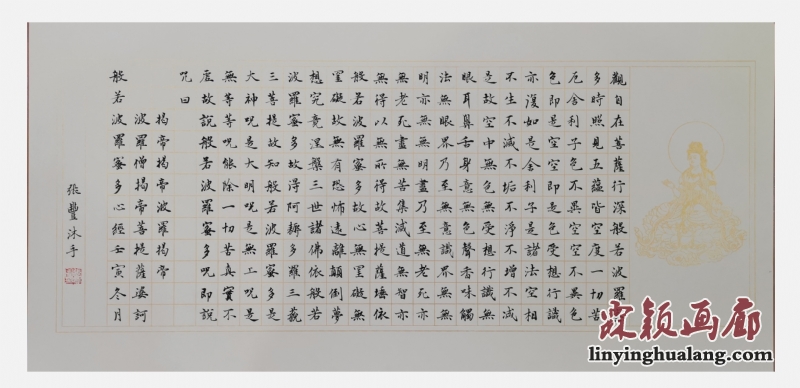 觀自在菩薩行深般若波羅
多時照見五蘊皆空度一切苦
厄舍利子色不異空空不異色
色即是空空即是色受想行識
亦復如是舍利子是諸法空相
不生不滅不垢不淨不增不減
是故空中無色無受想行識無
眼耳鼻舌身意無色聲香味觸
法無眼界乃至無意識界無無
明亦無無明盡乃至無老死亦
無老死盡無苦集滅道無智亦
無得以無所得故菩提薩埵依
般若波羅蜜多故心無罣礙無
罣礙故無有恐怖遠離顛倒夢
想究竟涅槃三世諸佛依般若
波羅蜜多故得阿耨多羅三藐
三菩提故知般若波羅蜜多是
大神咒是大明咒是無上咒是
無等等咒能除一切苦真實不
虛故說般若波羅蜜多咒即說
咒曰
揭帝揭帝波羅揭帝
波羅僧揭帝菩提薩婆訶
般若波羅蜜多心經壬寅冬月
張豐沐手
霖颖画廊
linyinghualang.com